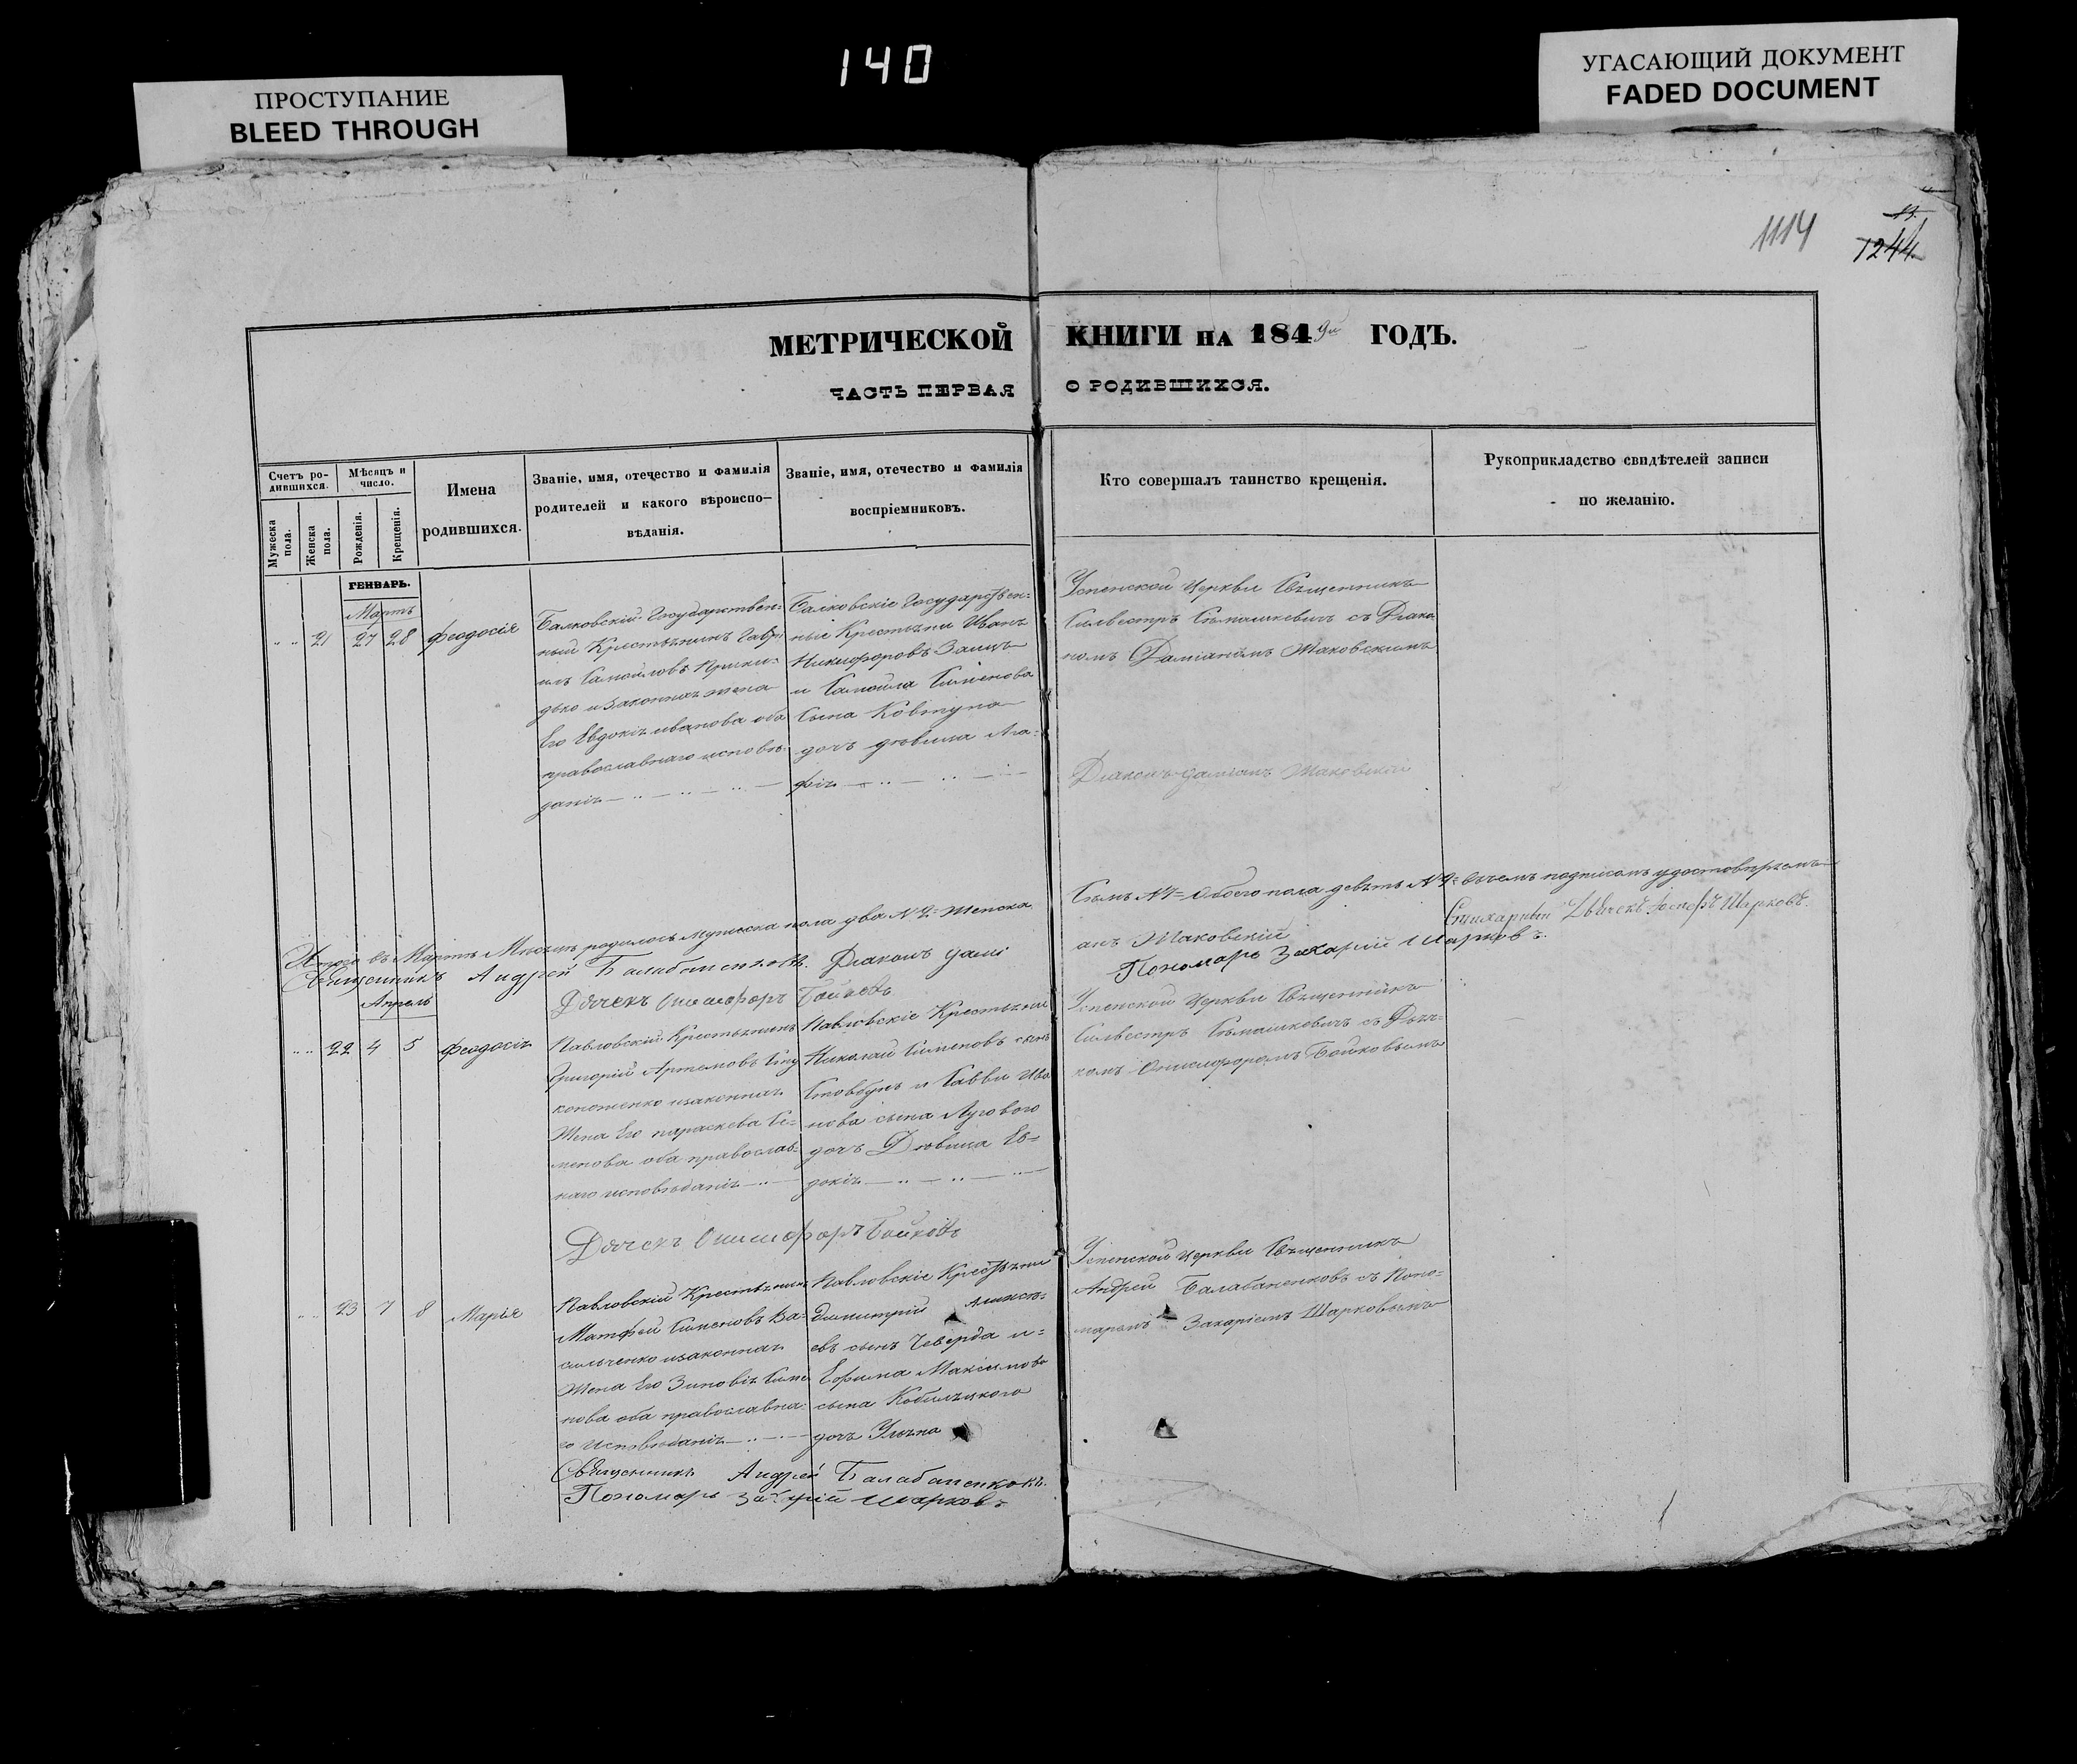 140
ПРОСТУПАНИЕ
BLEED THROUGH
УГАСАЮЩИЙ ДОКУМЕНТ
FADED DOCUMENT
1114
1244
МЕТРИЧЕСКОЙ КНИГИ НА 1849й ГОДЪ.
ЧАСТЬ ПЕРВАЯ О РОДИВШИХСЯ.
Счетъ ро-
дившихся.
Мужеска пола.
Женска пола.
Мѣсяцъ и
число.
Рожденія.
Крещенія.
Имена
родившихся.
Званіе, имя, отечество и фамилія
родителей и какого вѣроиспо-
вѣданія.
Званіе, имя, отечество и фамилія
воспріемниковъ.
Кто совершалъ таинство крещенія.
Рукоприкладство свидѣтелей записи
по желанію.
ГЕНВАРЬ.
Мартъ
21 27 28 Феодосія
Балковскій Государствен-
ный Крестьянинъ Гаврі
илъ Самойловъ
дько и законная жена
Его Евдокія иванова оба
православнаго исповѣ-
данія
Балковскіе Государствен-
ные Крестьяни Иванъ
Никифоровъ Заецъ
и Самойла Сименова
Сына Ковтуна
дочь дѣвица Ага-
фія
Успенской Церкви Священникъ
Сильвестръ Сѣмашкевичъ съ Діако
номъ Даміаномъ Маковскимъ
Діаконъ Даміанъ Маковскій
Итого въ Мартѣ Месяцѣ родилось Мужеска пола два №2= Женска
Семь №7= Обоего пола девять №9= въ чемъ подписомъ удостовѣряемъ
Священникъ Андрей Балабаненковъ. Діаконъ Дамі
анъ Маковскій
Пономарь Захарій Шарковъ.
Стихарный Дьячекъ Іосифъ Шарковъ.
Дьячекъ Онисифоръ Бойковъ
Апрель
22 4 5 Феодосія
Павловскій Крестьянинъ
Григорій Артемовъ
коноженко изаконная
Жена Его параскева Се-
менова оба православ-
наго исповѣданія
Павловскіе Крестьяни
Николай Сименовъ сынъ
Стовбунъ и Саввы Ива
нова сына Лугового
дочь Дѣвица Ев-
докія
Успенской Церкви Священникъ
Сильвестръ Сѣмашкевичъ съ Дьяч-
комъ Онисифоромъ Бойковымъ
Дьячекъ Онисифоръ Бойковъ
23 7 8 Марія
Павловскій Крестьянинъ
Матфей Сименовъ Ва-
сильченко изаконная
Жена Его Зиновія Симе
нова оба православна-
го Исповѣданія
Павловскіе Крестьяни
Димитрій Алексѣ-
евъ сынъ Чеверда и-
Ефима Максимова
сына Кобилѣцкого
дочь Ульяна
Успенской Церкви Священникъ
Андрей Балабаненковъ съ Поно-
маремъ Захаріемъ Шарковымъ
Священникъ Андрей Балабаненковъ.
Пономарь Захарій Шарковъ